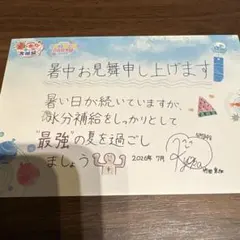 暑中お見舞申し上げます
暑い日が続いていますが、
水分補給をしっかりとして
"最強"の夏を過ごし
ましょう
2020年 7月